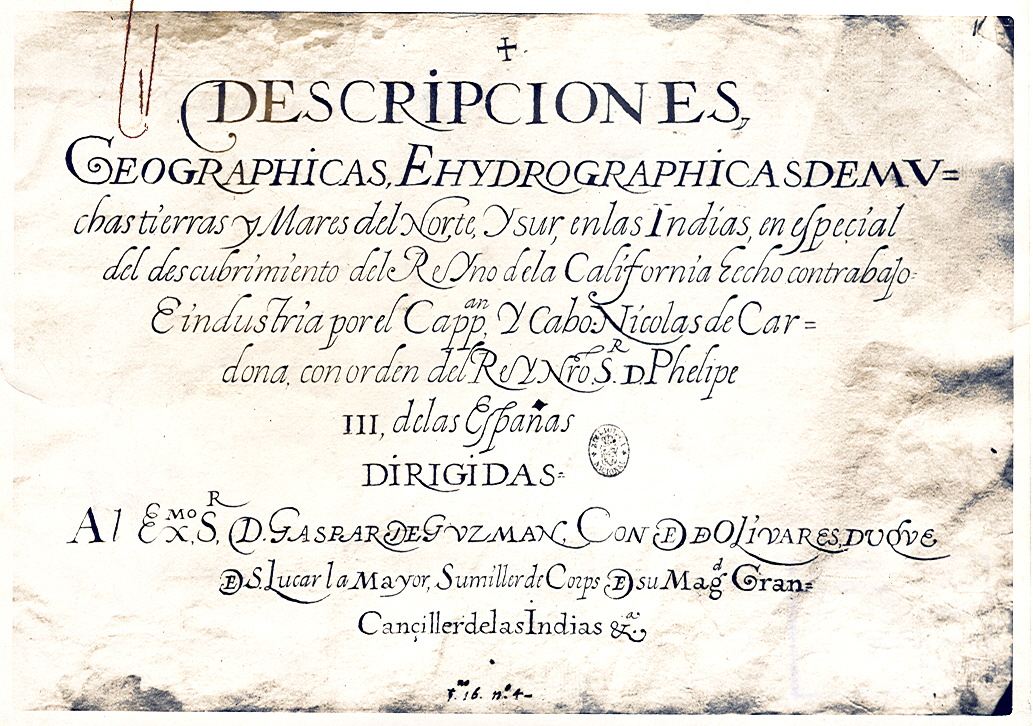 DESCRIPCIONES,
GEOGRAPHICAS, E HYDROGRAPHICAS DE MV=
chas tierras y Mares del Norte, Y sur, en las Indias, en especial
del descubrimiento del ReYno de la California hecho con trabajo
E industria por el Cappan, Y Cabo Nicolas de Car=
dona, con orden del ReY Nro. SR. D. Phelipe
III, de las Españas
DIRIGIDAS=
Al EXMO, SR, D. GASPAR DE GVZMAN, CONDE DE OLIVARES, DVQVE
DE S. Lucar la Mayor, Sumiller de Corps DE su Magd Gran=
Cançiller de las Indias &a.,
BIBLIOTECA NACIONAL